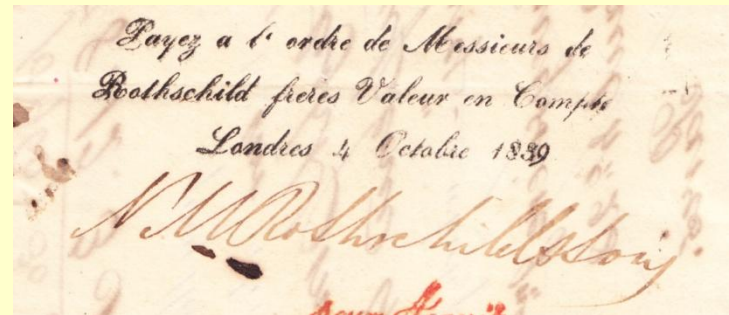 Payez a l' ordre de Messieurs de
Rothschild freres Valeur en Compte
Londres 4 Octobre 1839
N M Rothschild & Sons